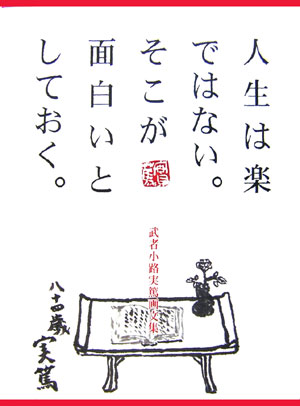 人生は楽
ではない。
そこが
面白いと
しておく。
武者小路実篤画文集
八十四歳
実篤